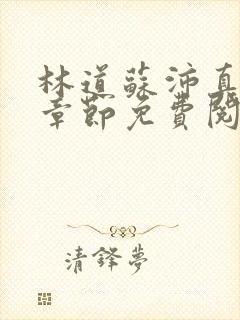 林道蘇沛真
章節免費閱
清鋒夢